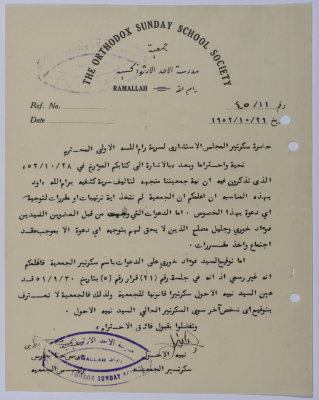 THE ORTHODOX SUNDAY SCHOOL SOCIETY
جمعية
مدرسة الاحد الارثوذكسية
RAMALLAH رام الله
Ref. No. ٤٥/١١ رقم
Date ١٩٥٢/١٠/٢٦
حضرة سكرتير المجلس الاستشارى لسرية رام الله الاولى المحترم
تحية واحتراما وبعد بالاشارة الى كتابكم المؤرخ في
الذى تذكرون فيه ان نية جمعيتنا متجهه لتاليف سرية كشفيه برام الله اود
بهذه المناسبه ان اعلمكم ان الجمعية لم تتخذ اية ترتيبات او مقررات لتوجيه
اى دعوة بهذا الخصوص . اما الدعوات التى من قبل العضوين السيدين
فؤاد خورى وجليل مصلح الذين لا يحق لهم بتوجيه اى دعوة الا بموجب عقد
اجتماع واخذ مقررات .
اما توقيع السيد فؤاد خورى على الدعوات باسم سكرتير الجمعية فاعلمكم
انه غير رسمي اذ انه في جلسة رقم (٢١) قرار رقم (٥) بتاريخ ٥١/٩/٣٠ قد
عين السيد نبيه الاحول سكرتيرا قانونيا للجمعية ولذلك فالجمعية لا تعترف
بتوقيع اى شخص آخر سوى السكرتير الحالي السيد نبيه الاحول .
وتفضلوا بقبول فائق الاحترام
نبيه الاحول
سكرتير الجمعية رئيس الجمعيه
مدرسة الاحد الارثوذكسية
RAMALLAH
ORTHODOX SUNDAY